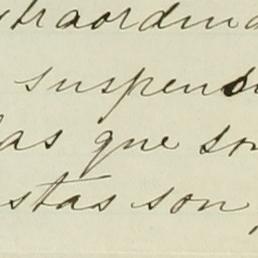 xtraordina
suspend
as que son
stas son